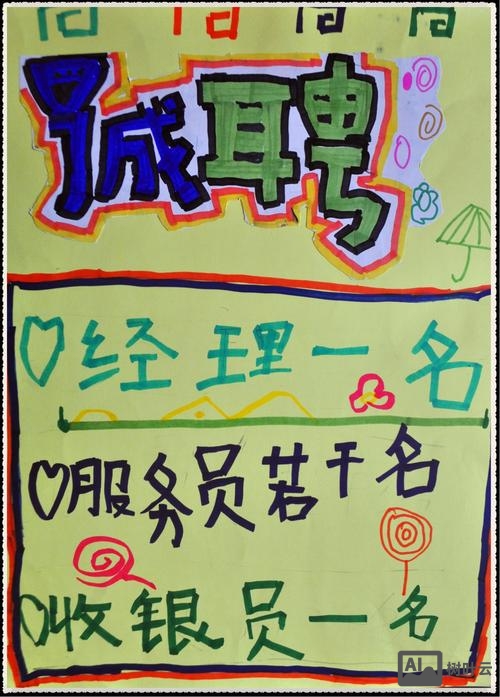 诚聘
经理一名
服务员若干名
收银员一名
AI 树叶云